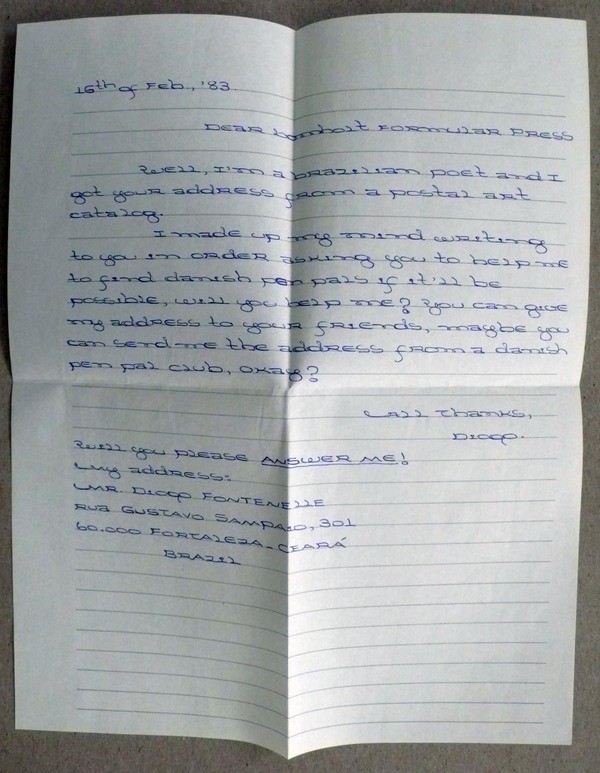 16th of Feb., '83.
Dear Lomholt Formular Press
Well, I'm a brazilian poet and I
got your address from a postal art
catalog.
I made up my mind writing
to you in order asking you to help me
to find danish pen pals if it'll be
possible, will you help me? You can give
my address to your friends, maybe you
can send me the address from a danish
pen pal club, okay?
All thanks,
Diogo.
Will you please ANSWER ME!
My address:
MR. Diogo FONTENELLE
RUA GUSTAVO SAMPAIO, 301
60.000 FORTALEZA - CEARÁ
BRAZIL